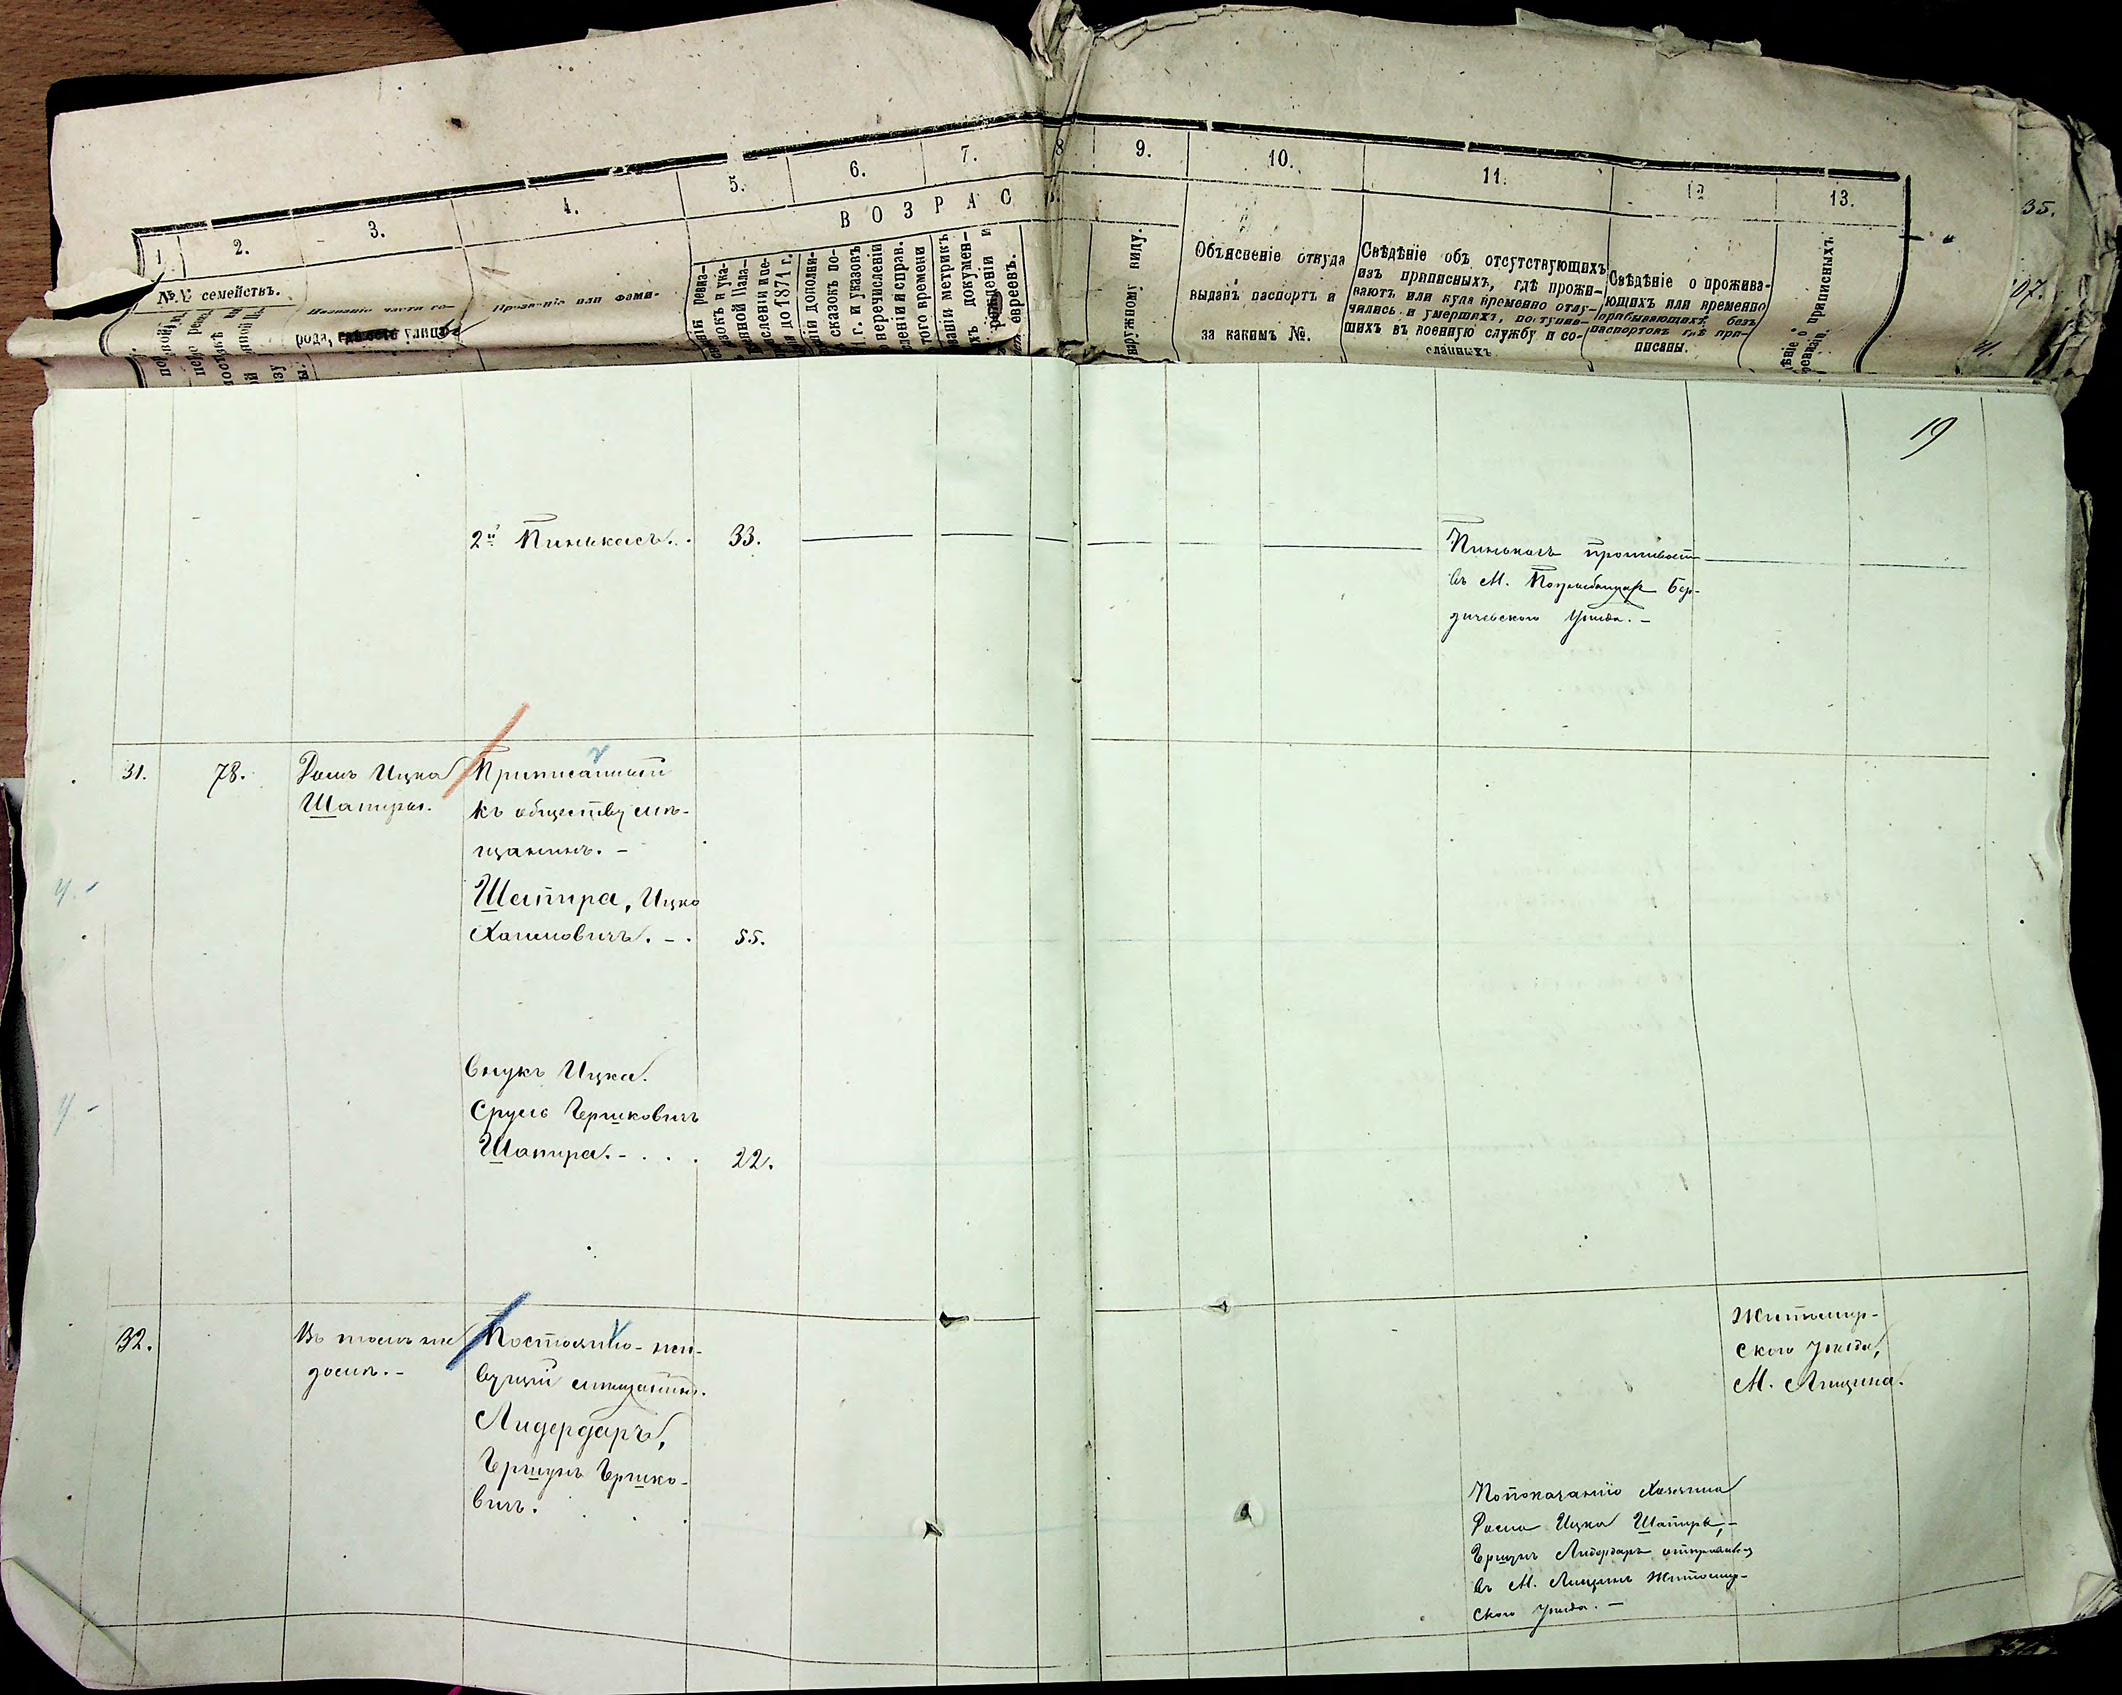 1. 2. 3. 4. 5. 6. 7. 8 9. 10. 11. 12 13.
35.
ВОЗРАС
№№ семействъ.
Названіе части го-
рода,
улицы
Прозваніе или фами-
до 1871 г.
евреевъ.
наружному виду.
Объясненіе откуда
выданъ паспортъ и
за какимъ №.
Свѣдѣніе объ отсутствующихъ
изъ приписныхъ, гдѣ прожи-
ваютъ или куда временно отлу-
чились и умершихъ, поступив-
шихъ въ военную службу и со-
сланныхъ
Свѣдѣніе о прожива-
ющихъ или временно
прибывающихъ безъ
паспортовъ гдѣ при-
писаны.
приписныхъ.
107.
19
2й Пинькасъ. . 33.
Пинькасъ проживаетъ
въ М. Бер-
дичевского уѣзда. –
31. 78. Домъ Ицка
Шапиры.
Приписанный
къ обществу мѣ-
щанинъ. –
Шапира, Ицко
Хаимовичъ. – . 55.
Внукъ Ицка.
Сруль Гершковичъ
Шапира. – . . . 22.
32. Въ томъ же
домѣ. –
Постоянно-жи-
вущій мѣщанинъ.
Лидердаръ,
Гершунъ Гершко-
вичъ. . . .
Житомир-
ского уѣзда,
М. Лещина.
По показанію хозяина
дома Ицка Шапиры, –
Гершунъ Лидердаръ
въ М. Лещинъ Житомир-
ского уѣзда. –